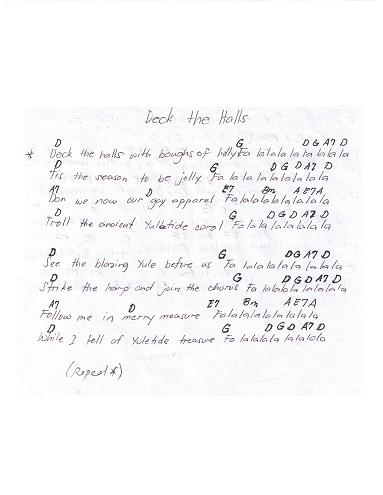 Deck the Halls
D G D G A7 D
* Deck the halls with boughs of holly Fa la la la la la la la la
D G D G D A7 D
Tis the season to be jolly Fa la la la la la la la la
A7 D E7 Bm A E7 A
Don we now our gay apparel Fa la la la la la la la la
D G D G D A7 D
Troll the ancient Yuletide carol Fa la la la la la la la la
D G D G A7 D
See the blazing Yule before us Fa la la la la la la la la
D G D G D A7 D
Strike the harp and join the chorus Fa la la la la la la la la
A7 D E7 Bm A E7 A
Follow me in merry measure Fa la la la la la la la la
D G D G D A7 D
While I tell of Yuletide treasure Fa la la la la la la la la
(Repeat *)